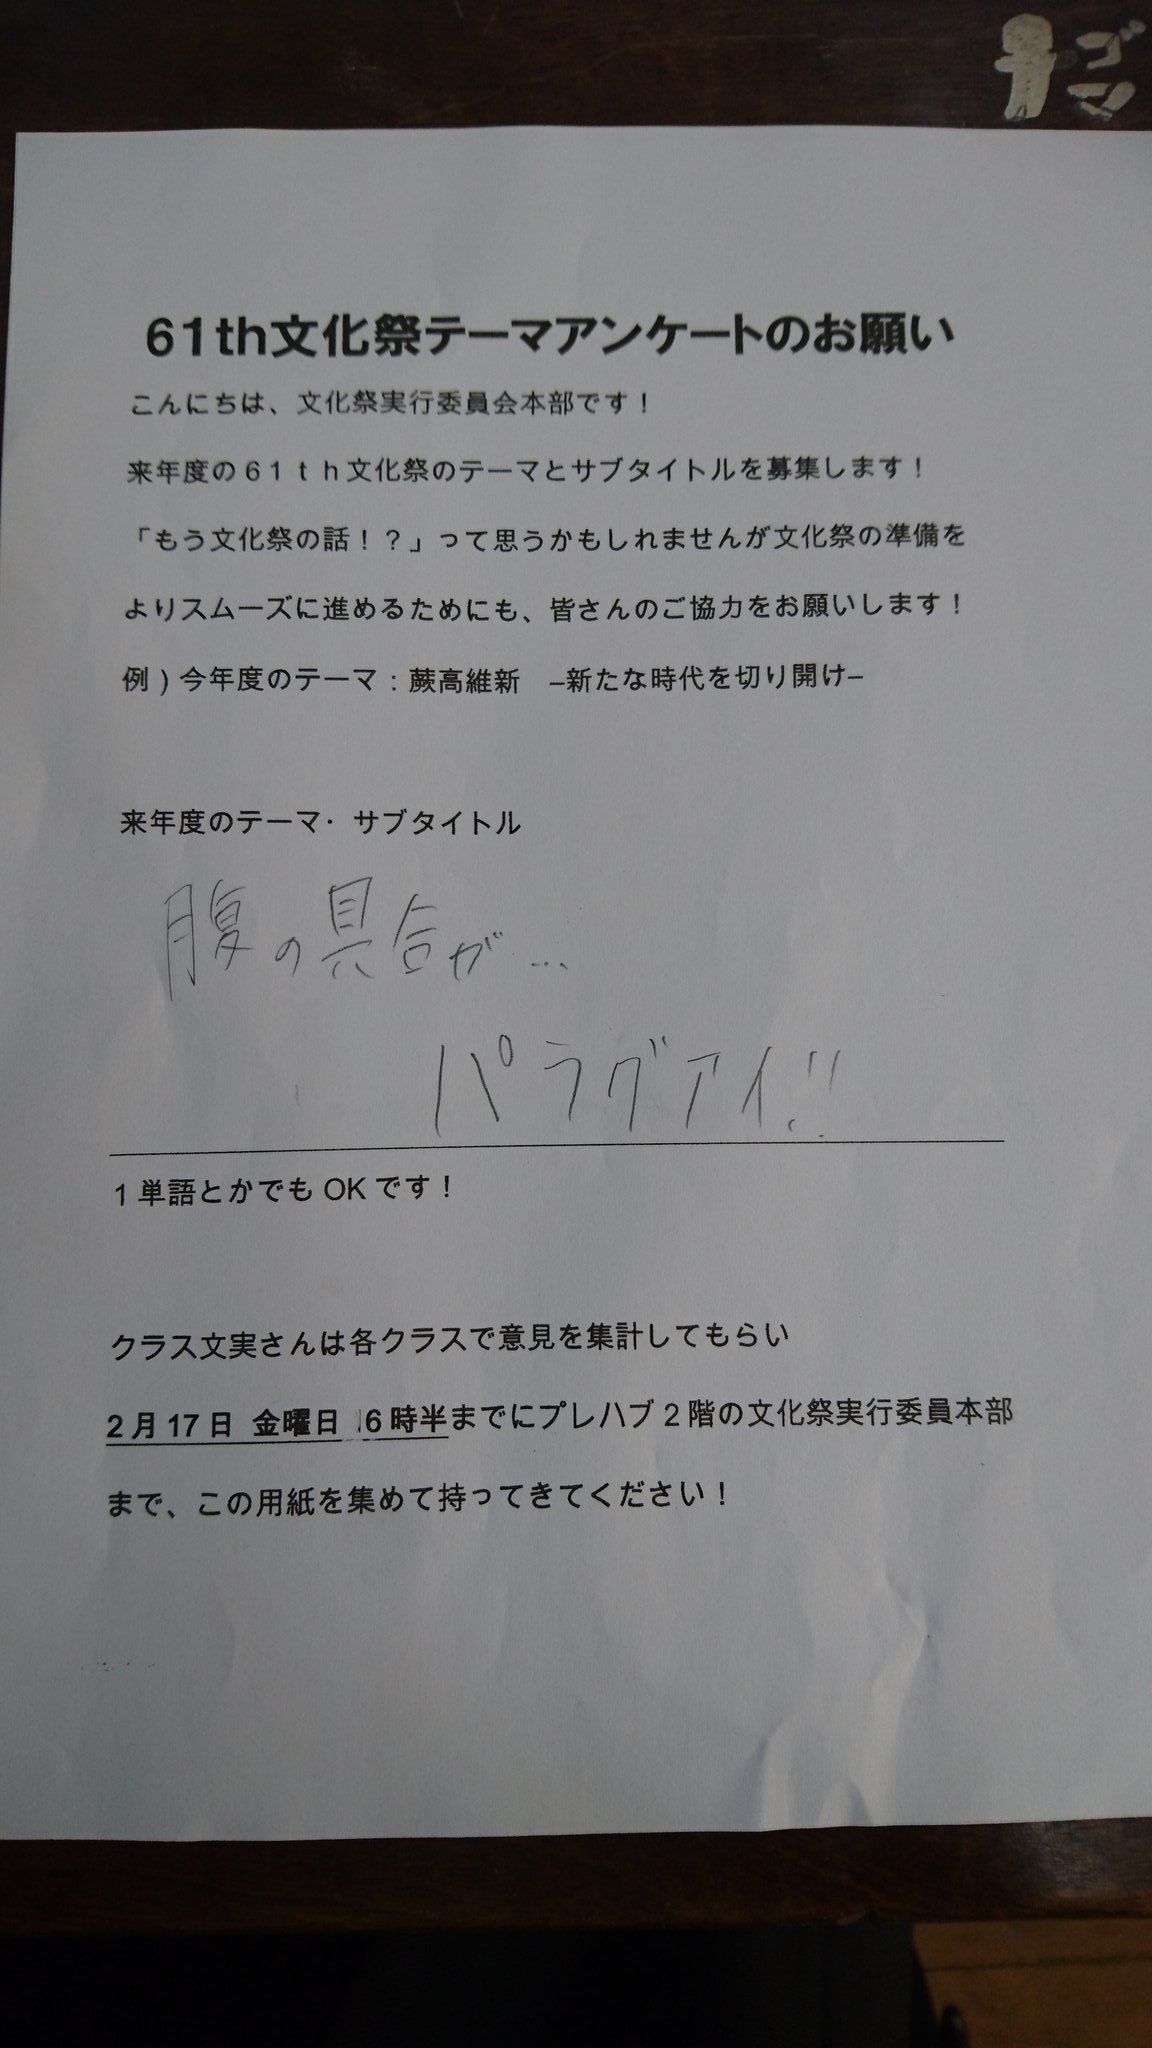 ゴマ
61th文化祭テーマアンケートのお願い
こんにちは、文化祭実行委員会本部です！
来年度の６１ｔｈ文化祭のテーマとサブタイトルを募集します！
「もう文化祭の話！？」って思うかもしれませんが文化祭の準備を
よりスムーズに進めるためにも、皆さんのご協力をお願いします！
例）今年度のテーマ：蕨高維新　–新たな時代を切り開け–
来年度のテーマ・サブタイトル
腹の具合が…
パラグアイ!!
1単語とかでもOKです！
クラス文実さんは各クラスで意見を集計してもらい
2月17日 金曜日 16時半までにプレハブ2階の文化祭実行委員本部
まで、この用紙を集めて持ってきてください！